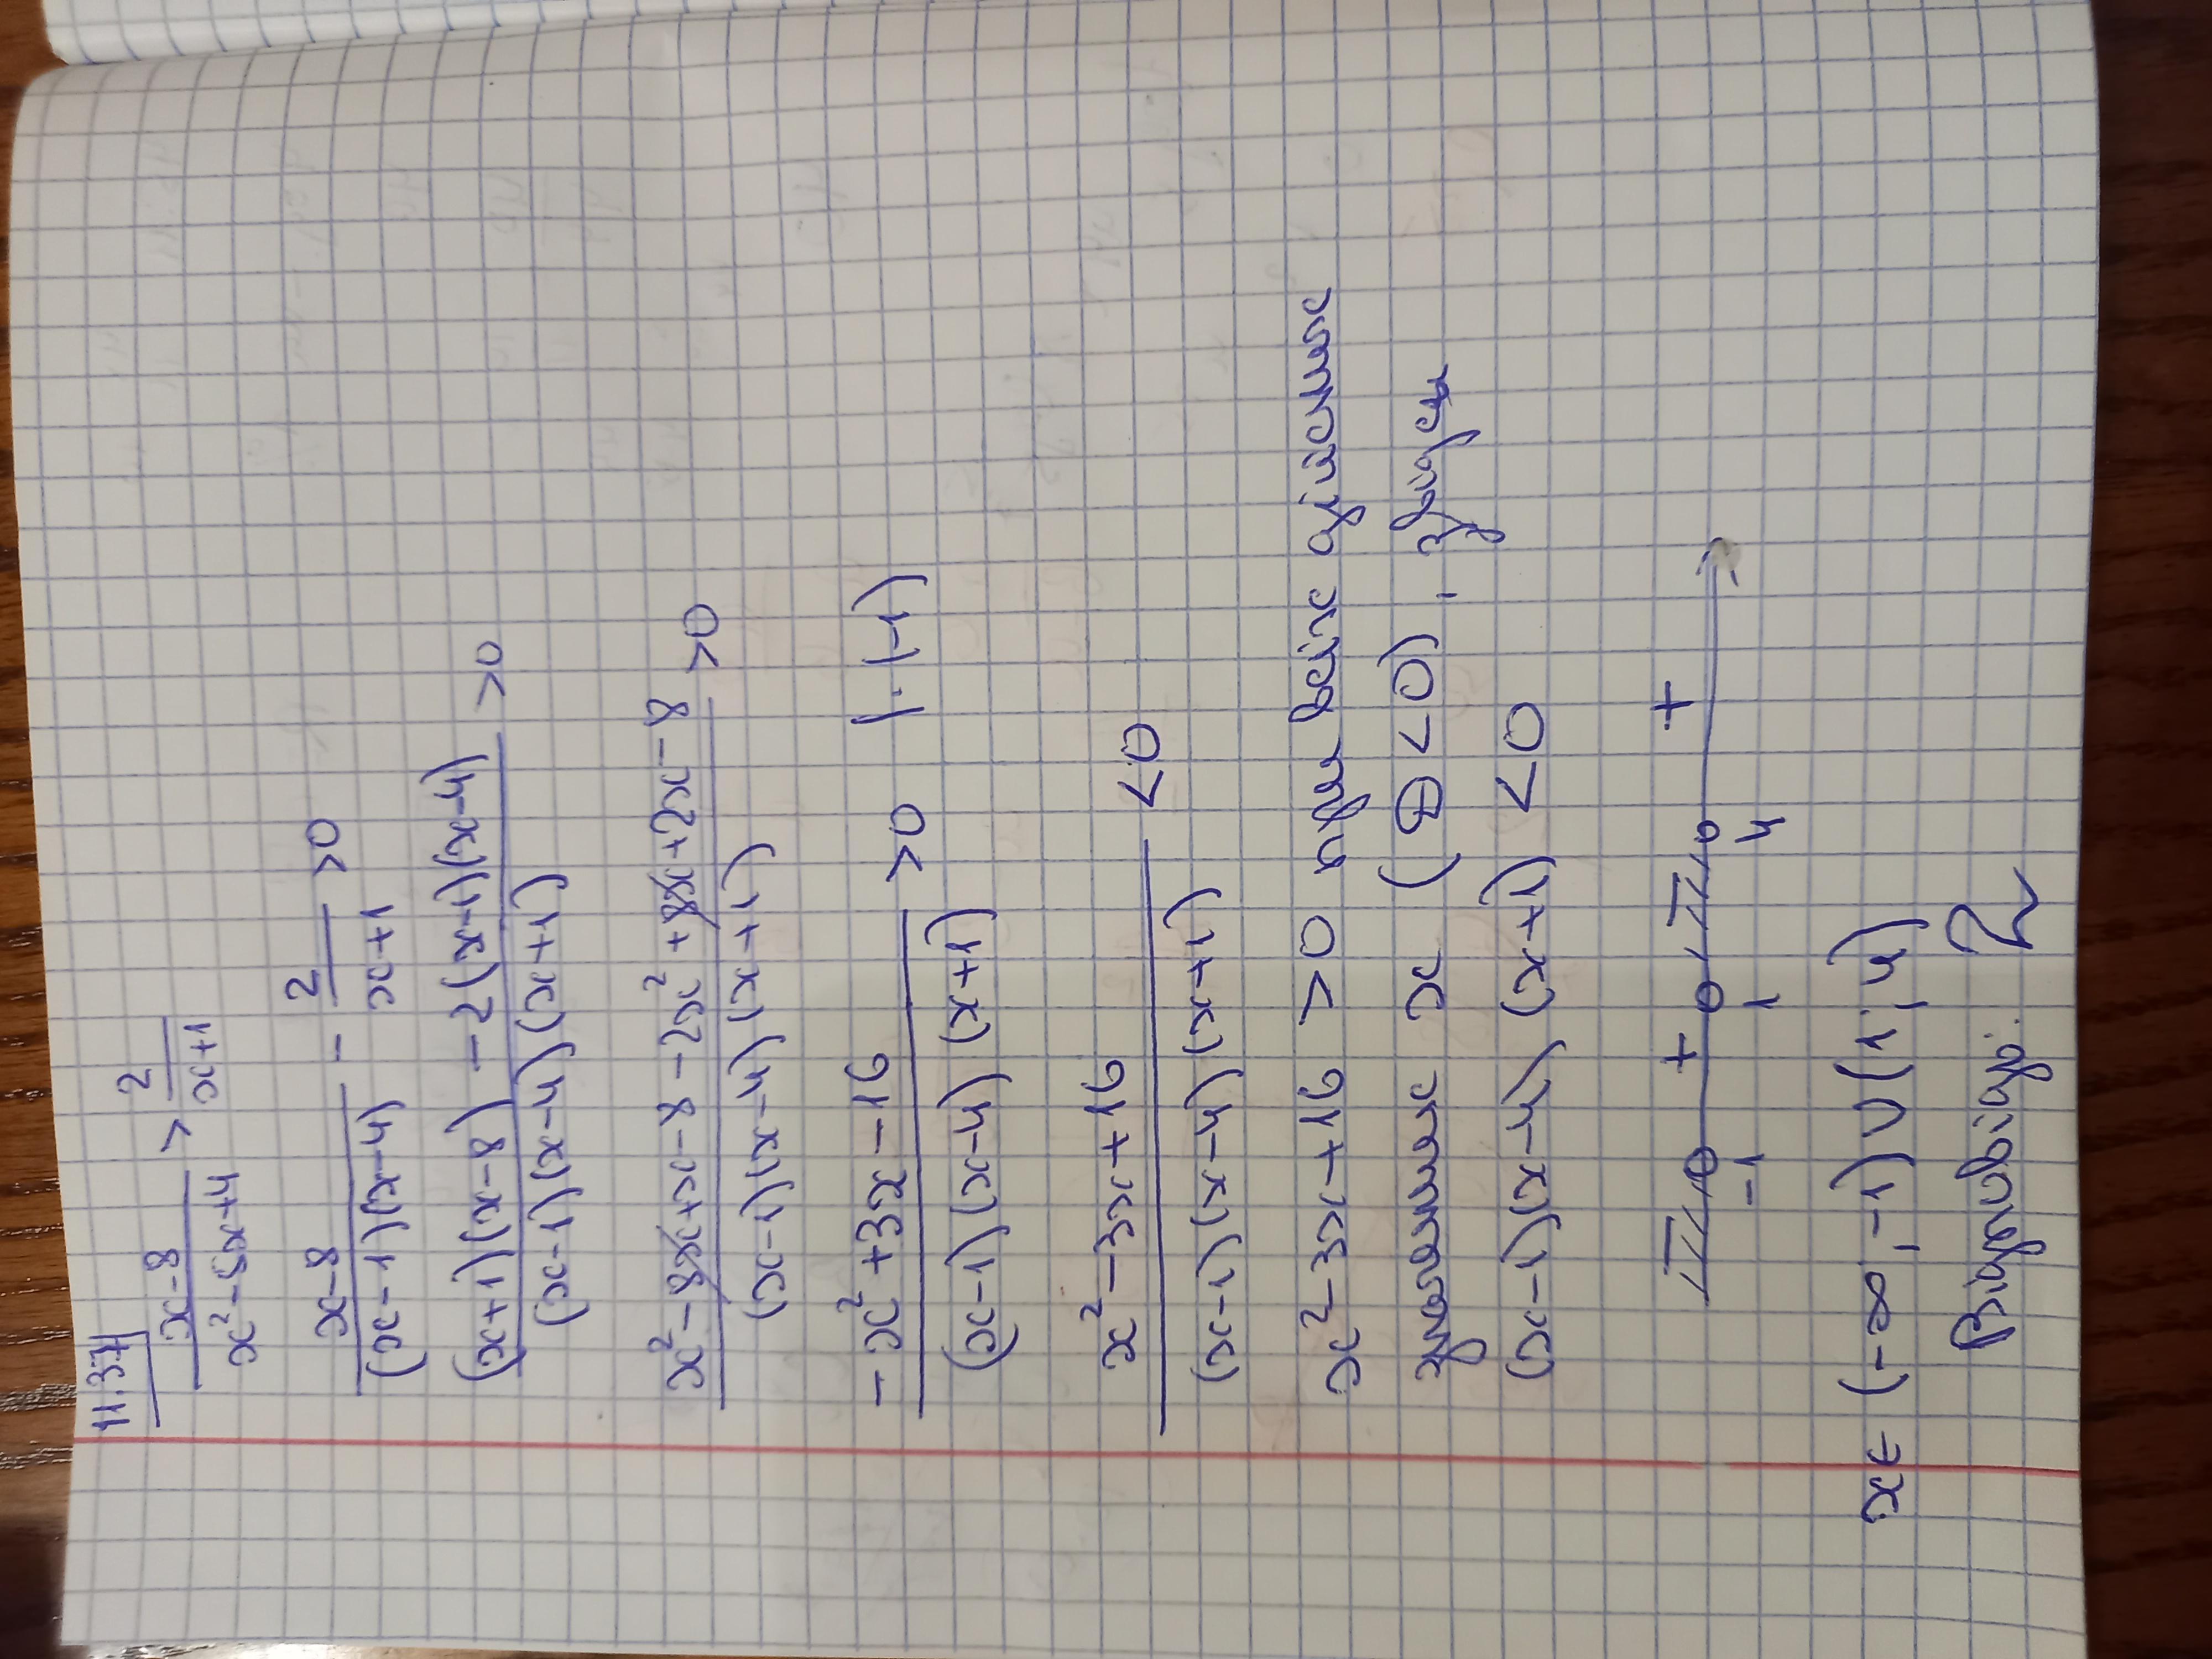 11.37
x-8/x²-5x+4 > 2/x+1
x-8/(x-1)(x-4) - 2/x+1 >0
(x+1)(x-8) -2(x-1)(x-4)/(x-1)(x-4)(x+1) >0
x²-8x+x-8-2x²+8x+2x-8/(x-1)(x-4)(x+1) >0
-x²+3x-16/(x-1)(x-4)(x+1) >0 |·(-1)
x²-3x+16/(x-1)(x-4)(x+1) <0
x²-3x+16 >0 при всіх допустимих
значеннях x (D<0), звідси
(x-1)(x-4)(x+1) <0
+ +
-1 1 4
x∈(-∞;-1)∪(1;4)
Відповідь: 2